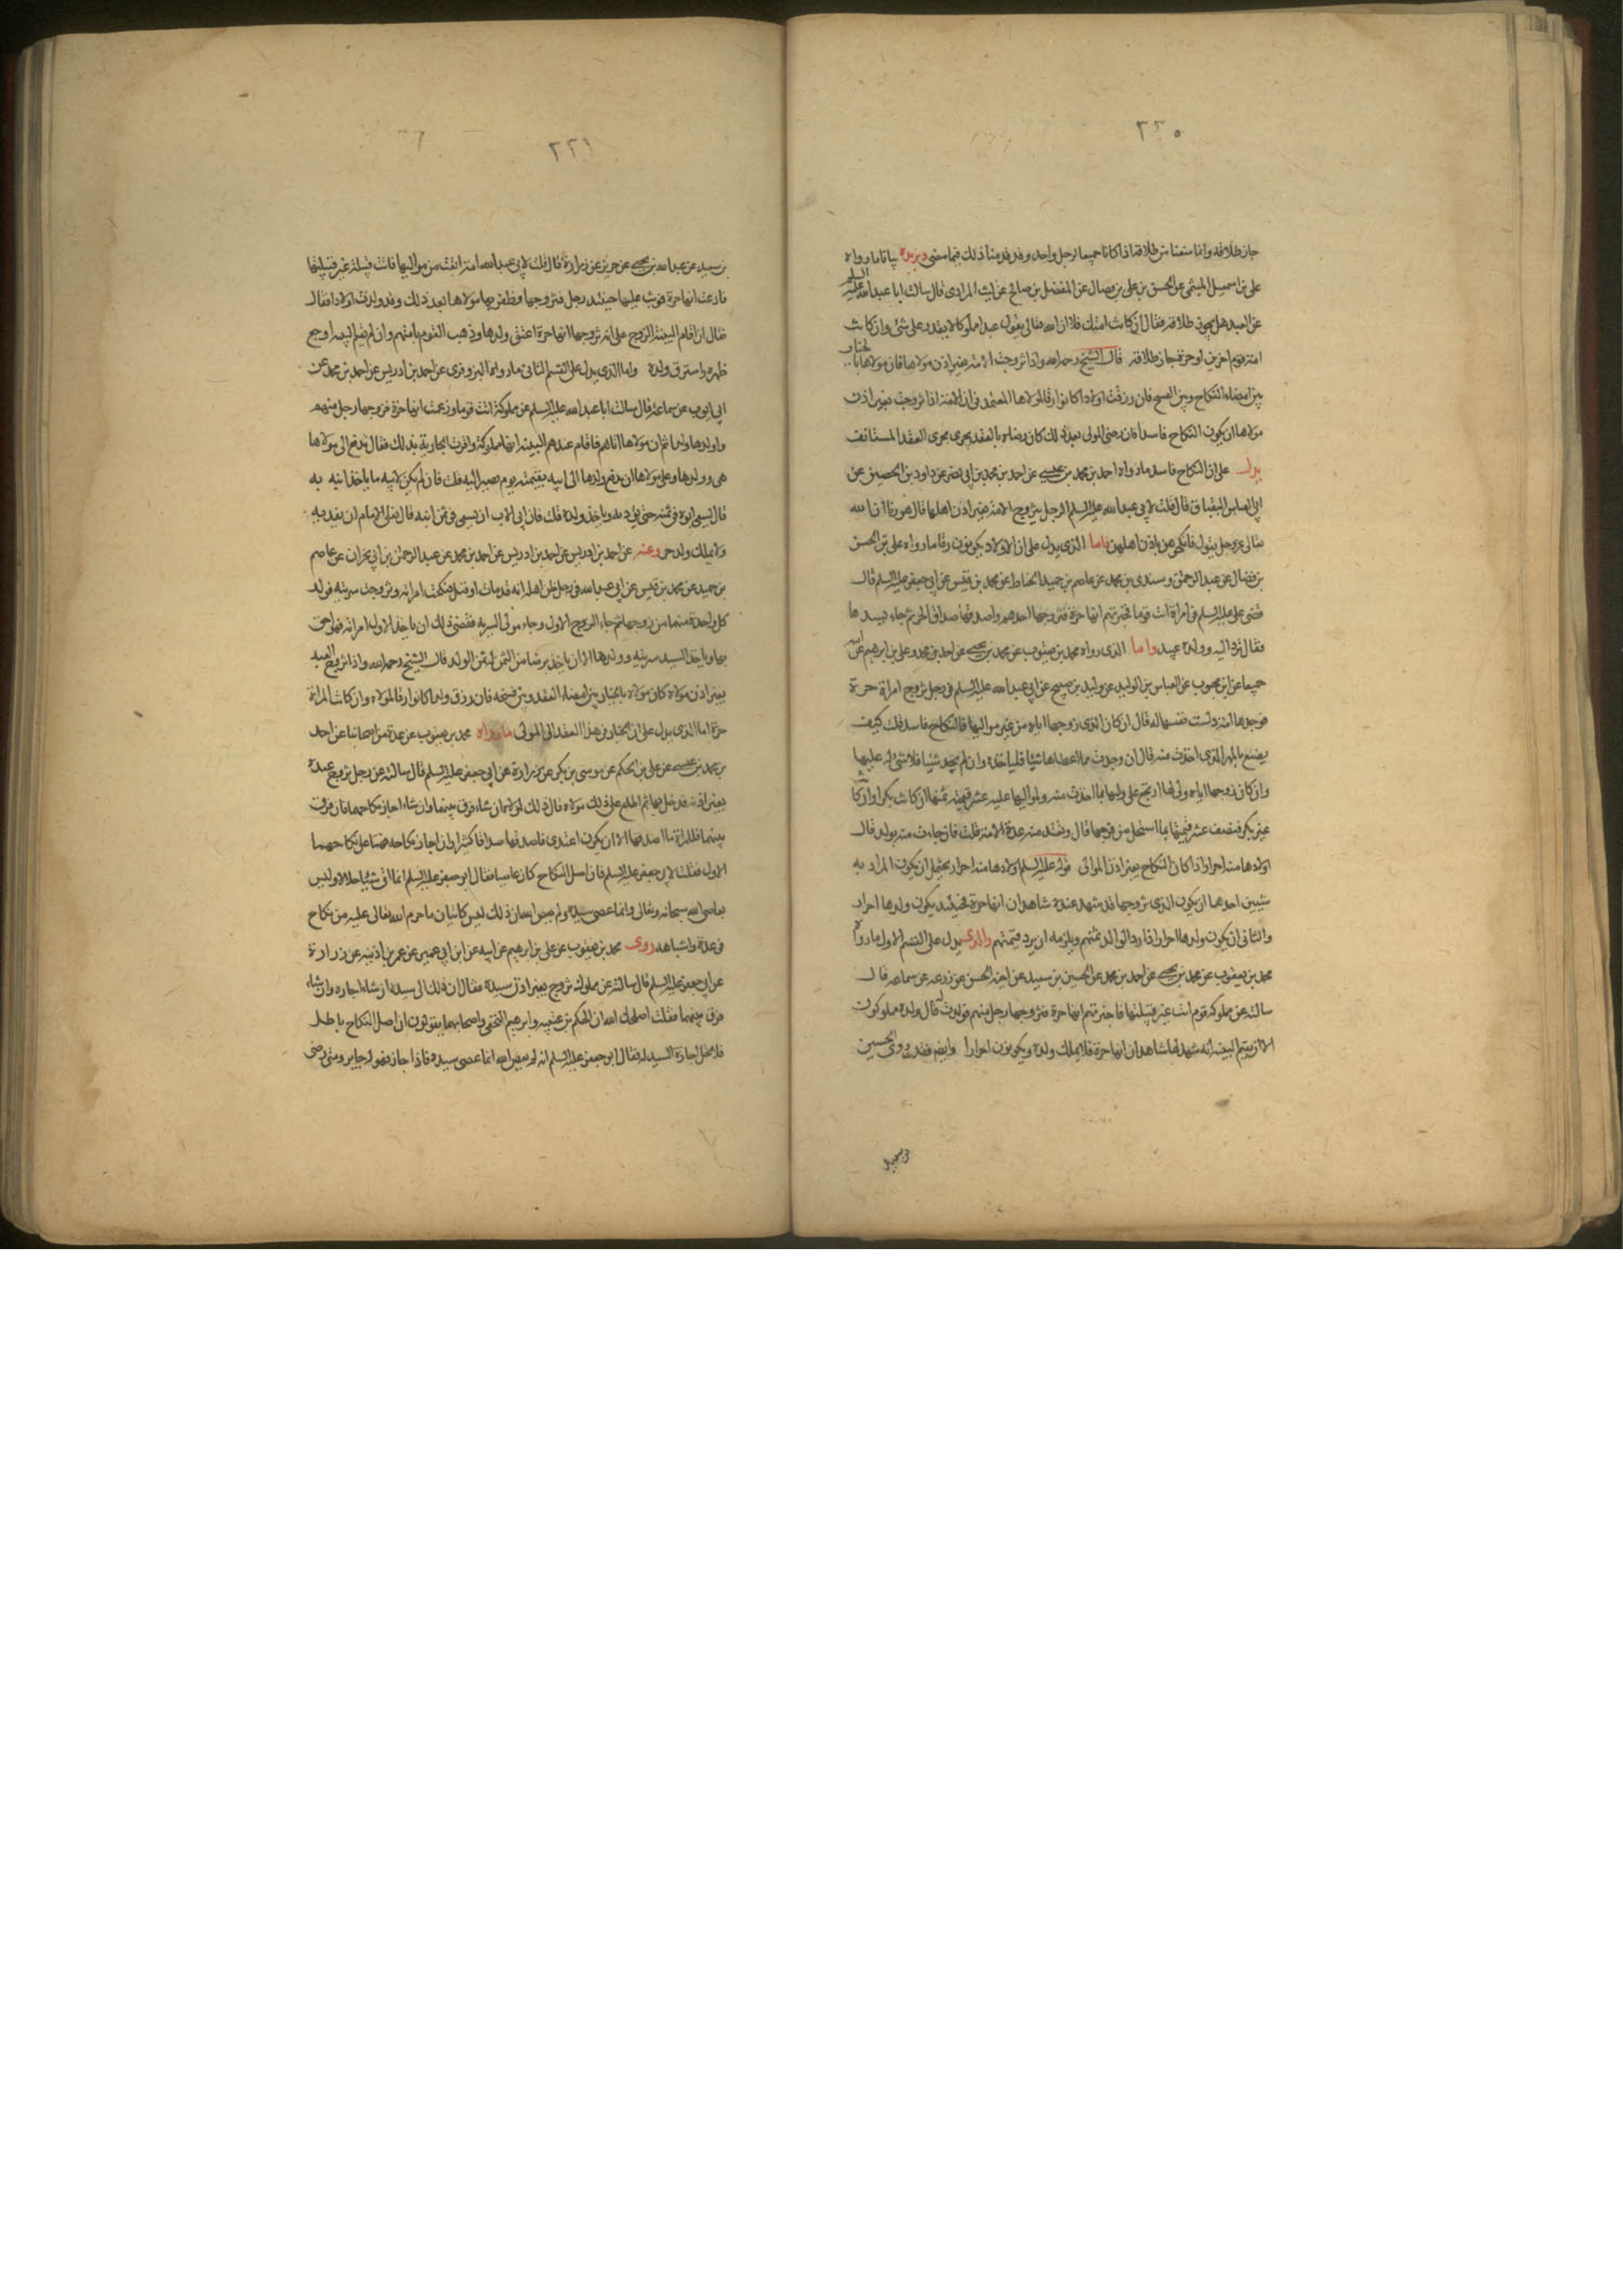 ٢٢٥
جاز طلاقه وانما منعنا من طلاقه اذا كانا جميعا لرجل واحد وقد قدمنا ذلك فيما مضى ويزيده بيانا ما رواه
على بن اسمعيل الميثمى عن الحسن بن على بن فضال عن المفضل بن صالح عن ليث المرادى قال سالت ابا عبد الله عليه السلم
عن العبد هل يجوز طلاقه فقال ان كانت امتك فلا ان الله تعالى يقول عبدا مملوكا لا يقدر على شئ وان كانت
امة قوم اخرين او حرة جاز طلاقه قال الشيخ رحمه الله واذا تزوجت الامة بغير اذن مولاها فان مولاها بالخيار
بين امضاء النكاح وبين الفسخ فان رزقت اولادا كانوا رقا لمولاها المعتمد فى ان الامة اذا تزوجت بغير اذن
مولاها ان يكون النكاح فاسدا فان رضى المولى بعد ذلك كان رضاه بالعقد يجرى مجرى العقد المستانف
يدل على ان النكاح فاسد ما رواه احمد بن محمد بن عيسى عن احمد بن محمد بن ابى نصر عن داود بن الحصين عن
ابى العباس البقباق قال قلت لابى عبد الله عليه السلم الرجل يتزوج الامة بغير اذن اهلها قال هو زنا ان الله
تعالى عز وجل يقول فانكحوهن باذن اهلهن فاما الذى يدل على ان الاولاد يكونون رقا ما رواه على بن الحسن
بن فضال عن عبد الرحمن وسندى بن محمد عن عاصم بن حميد الحناط عن محمد بن قيس عن ابى جعفر عليه السلم قال
قضى على عليه السلم فى امراة اتت قوما فخبرتهم انها حرة فتزوجها احدهم واصدقها صداق الحرة ثم جاء سيدها
فقال ترد اليه وولده عبيد واما الذى رواه محمد بن يعقوب عن محمد بن يحيى عن احمد بن محمد وعلى بن ابرهيم عن ابيه
جميعا عن ابن محبوب عن العباس بن الوليد عن وليد بن صبيح عن ابى عبد الله عليه السلم فى رجل تزوج امراة حرة
فوجدها امة دلست نفسها له قال ان كان الذى زوجها اياه من غير مواليها فالنكاح فاسد قلت كيف
يصنع بالمهر الذى اخذت منه قال ان وجدت مما اعطاها شيئا فلياخذه وان لم يجد شيئا فلا شئ له عليها
وان كان زوجها اياه ولى لها ارتجع على وليها بما اخذت منه ولمواليها عليه عشر قيمة ثمنها ان كانت بكرا وان كانت
غير بكر فنصف عشر قيمتها بما استحل من فرجها قال وتعتد منه عدة الامة قلت فان جاءت منه بولد قال
اولادها منه احرار اذا كان النكاح بغير اذن الموالى قوله عليه السلم اولادها منه احرار يحتمل ان يكون المراد به
شيئين احدهما ان يكون الذى تزوجها قد شهد عنده شاهدان انها حرة فحينئذ يكون ولدها احرار
والثانى ان يكون ولدها احرارا اذا رد الوالد ثمنهم ويلزمه ان يرد قيمتهم والذى يدل على القسم الاول ما رواه
محمد بن يعقوب عن محمد بن يحيى عن احمد بن محمد عن الحسين بن سعيد عن اخيه الحسن عن زرعة عن سماعة قال
سالته عن مملوكة قوم اتت غير قبيلتها فاخبرتهم انها حرة فتزوجها رجل منهم فولدت له قال ولده مملوكون
الا ان يقيم البينة انه شهد لها شاهدان انها حرة فلا يملك ولده ويكونون احرارا وايضا فقد روى الحسين
بن سعيد
٢٢١
بن سعيد عن عبد الله بن يحيى عن حريز عن زرارة قال قلت لابى عبد الله امة ابقت من مواليها فاتت قبيلة غير قبيلتها
فادعت انها حرة فوثب عليها حينئذ رجل فتزوجها فظفر بها مولاها بعد ذلك وقد ولدت اولادا فقال
فقال ان اقام البينة الزوج على انه تزوجها انها حرة اعتق ولدها وذهب القوم بامتهم وان لم يقم البينة اوجع
ظهره واسترق ولده واما الذى يدل على القسم الثانى ما رواه البزوفرى عن احمد بن ادريس عن احمد بن محمد عن
ابى ايوب عن سماعة قال سالت ابا عبد الله عليه السلم عن مملوكة اتت قوما وزعمت انها حرة فزوجها رجل منهم
واولدها ولدا ثم ان مولاها اتاهم فاقام عندهم البينة انها مملوكة واقرت الجارية بذلك فقال تدفع الى مولاها
هى وولدها وعلى مولاها ان يدفع ولدها الى ابيه بقيمته يوم يصير اليه قلت فان لم يكن لابيه ما ياخذ ابنه به
قال يسعى ابوه فى ثمنه حتى يؤديه وياخذ ولده قلت فان ابى الاب ان يسعى فى ثمن ابنه قال فعلى الامام ان يفديه
ولا يملك ولد حر وعنه عن احمد بن ادريس عن احمد بن ادريس عن احمد بن محمد عن عبد الرحمن بن ابى نجران عن عاصم
بن حميد عن محمد بن قيس عن ابى عبد الله فى رجل ظن اهله انه قد مات او قتل فنكحت امراته وتزوجت سريته فولد
كل واحدة منهما من زوجها ثم جاء الزوج الاول وجاء مولى السرية فقضى فى ذلك ان ياخذ الاول امراته فهو احق
بها وياخذ السيد سريته وولدها الا ان ياخذ رضا من الثمن له ثمن الولد قال الشيخ رحمه الله واذا تزوج العبد
بغير اذن مولاه كان مولاه بالخيار بين امضاء العقد وبين فسخه فان رزق ولدا كانوا رقا لمولاه وان كانت المراة
حرة اما الذى يدل على ان الخيار فى هذا العقد الى المولى ما رواه محمد بن يعقوب عن عدة من اصحابنا عن احمد
بن محمد بن عيسى عن على بن الحكم عن موسى بن بكر عن زرارة عن ابى جعفر عليه السلم قال سالته عن رجل تزوج عبده
بغير اذنه فدخل بها ثم اطلع على ذلك مولاه قال ذلك لمولاه ان شاء فرق بينهما وان شاء اجاز نكاحهما فان فرق
بينهما فللمراة ما اصدقها الا ان يكون اعتدى فاصدقها صداقا كثيرا وان اجاز نكاحه فهما على نكاحهما
الاول فقلت لابى جعفر عليه السلم فان اصل النكاح كان عاصيا فقال ابو جعفر عليه السلم انما اتى شيئا حلالا وليس
بعاص لله سبحانه وتعالى وانما عصى سيده ولم يعص الله ان ذلك ليس كاتيان ما حرم الله تعالى عليه من نكاح
فى عدة واشباهه روى محمد بن يعقوب عن على بن ابرهيم عن ابيه عن ابن ابى عمير عن عمر بن اذينه عن زرارة
عن ابى جعفر عليه السلم قال سالته عن مملوك تزوج بغير اذن سيده فقال ان ذلك الى سيده ان شاء اجازه وان شاء
فرق بينهما فقلت اصلحك الله ان الحكم بن عتيبه وابرهيم النخعى واصحابهما يقولون ان اصل النكاح باطل
فلا تحل اجازة السيد له فقال ابو جعفر عليه السلم انه لم يعص الله انما عصى سيده فاذا اجاز فهو له جايز ومتى رضى